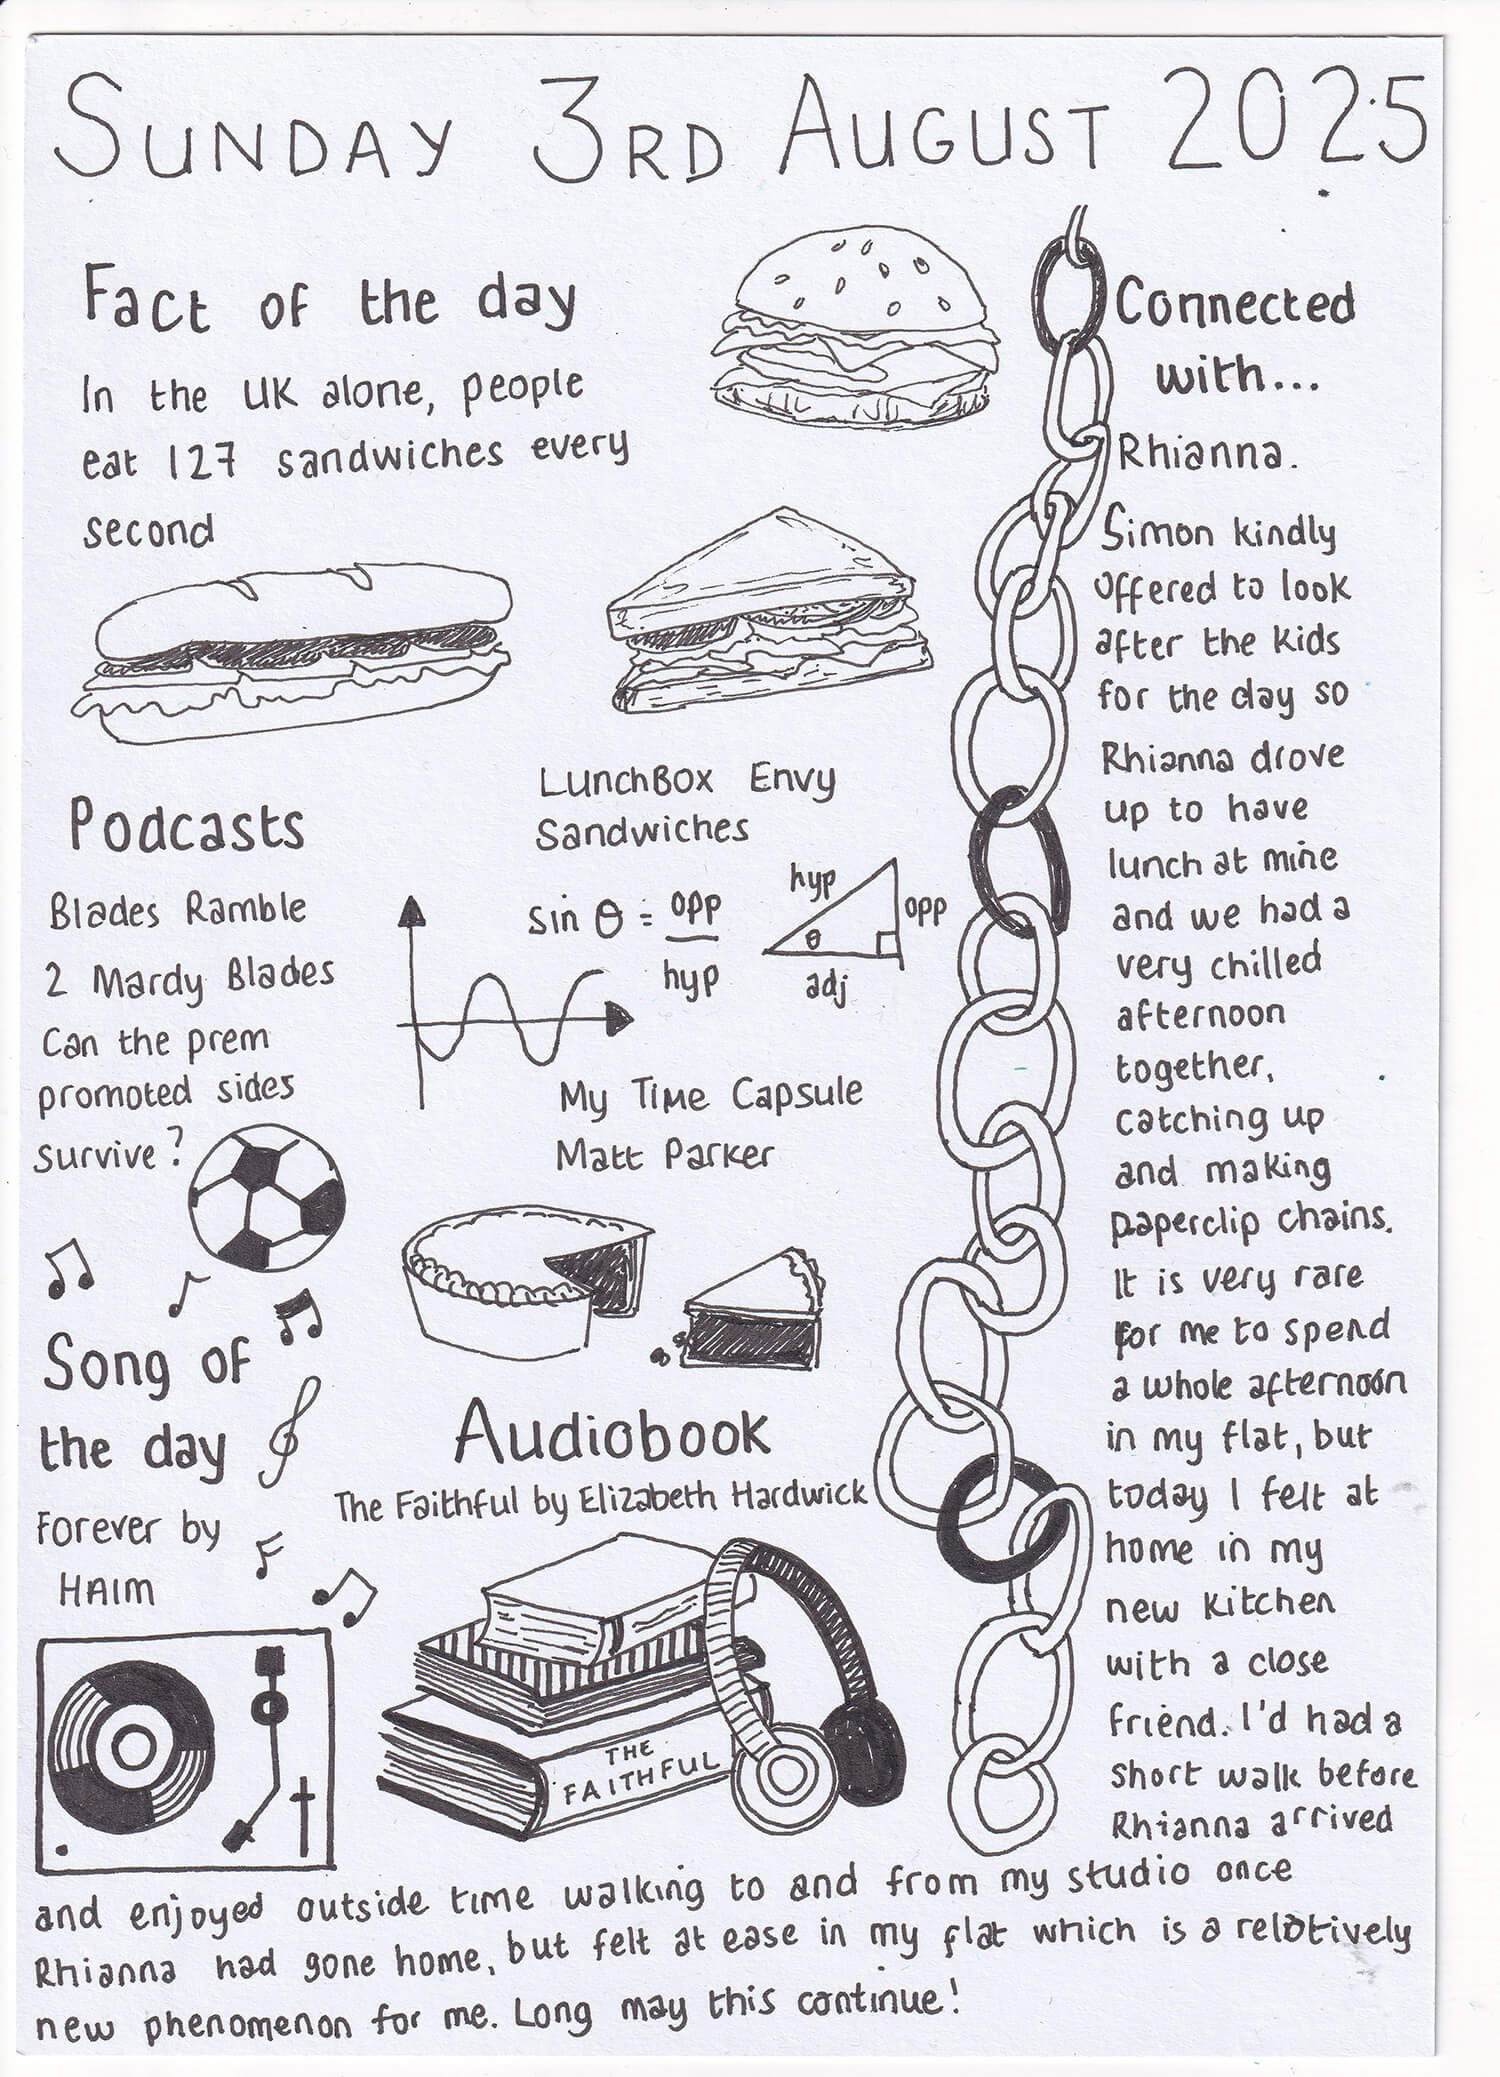 SUNDAY 3RD AUGUST 2025
Fact of the day
In the UK alone, people
eat 127 sandwiches every
second
Podcasts
Blades Ramble
2 Mardy Blades
Can the prem
promoted sides
survive?
LunchBox Envy
Sandwiches
sin θ = opp
hyp
hyp
opp
θ
adj
My Time Capsule
Matt Parker
Song of
the day
Forever by
HAIM
Audiobook
The Faithful by Elizabeth Hardwick
THE
FAITHFUL
Connected
with...
Rhianna.
Simon kindly
offered to look
after the kids
for the day so
Rhianna drove
up to have
lunch at mine
and we had a
very chilled
afternoon
together,
catching up
and making
paperclip chains.
It is very rare
for me to spend
a whole afternoon
in my flat, but
today I felt at
home in my
new kitchen
with a close
friend. I'd had a
short walk before
Rhianna arrived
and enjoyed outside time walking to and from my studio once
Rhianna had gone home, but felt at ease in my flat which is a relatively
new phenomenon for me. Long may this continue!